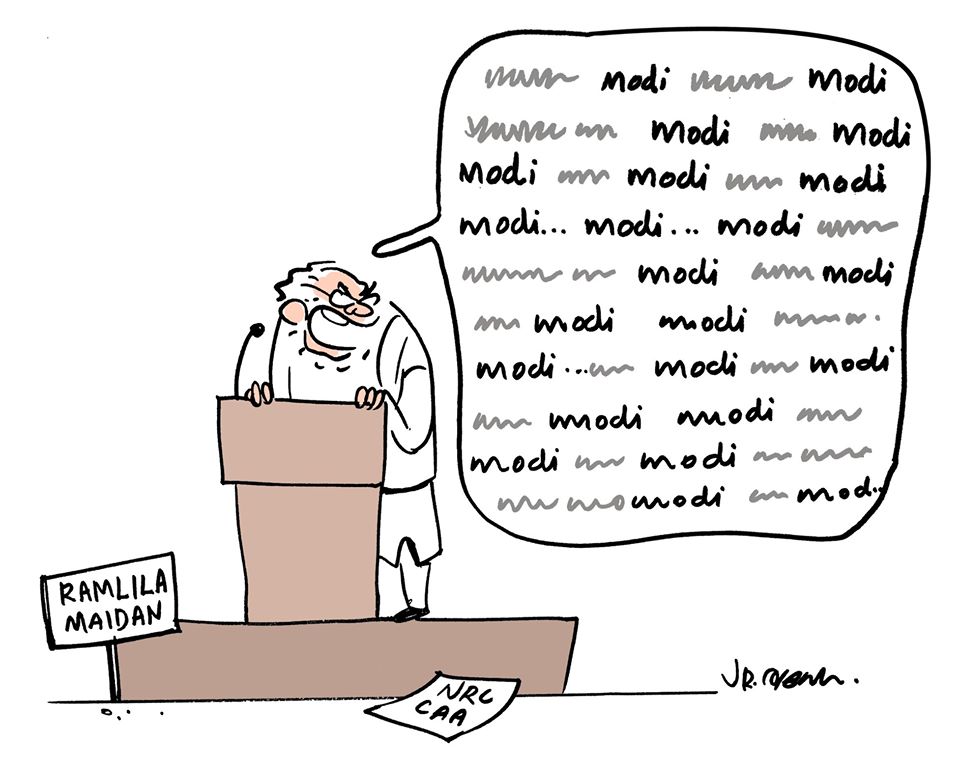 modi modi
modi modi
modi modi modi
modi... modi... modi
modi modi
modi modi
modi... modi modi
modi modi
modi modi
modi mod..
RAMLILA
MAIDAN
NRC
CAA